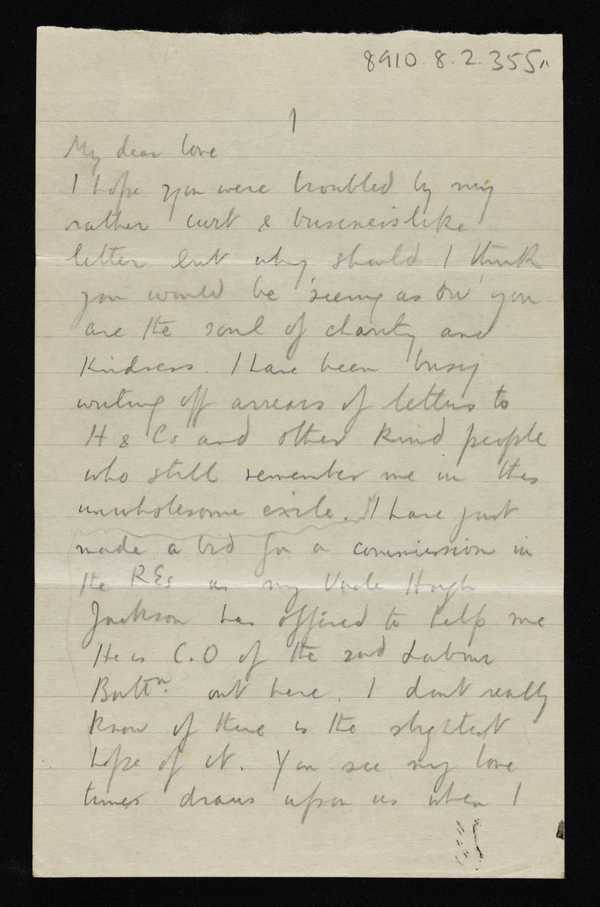 8910.8.2.355
1
My dear love
I hope you were troubled by my
rather curt & businesslike
letter but why should I think
you would be 'seeing as ow' you
are the soul of charity and
kindness. I have been busy
writing off arrears of letters to
H & Co and other kind people
who still remember me in this
unwholesome exile. I have just
made a bid for a commission in
the REs as my Uncle Hugh
Jackson has offered to help me
He is C.O of the 2nd Labour
Battn. out here. I dont really
know if there is the slightest
hope of it. You see my love
times draws upon us when I